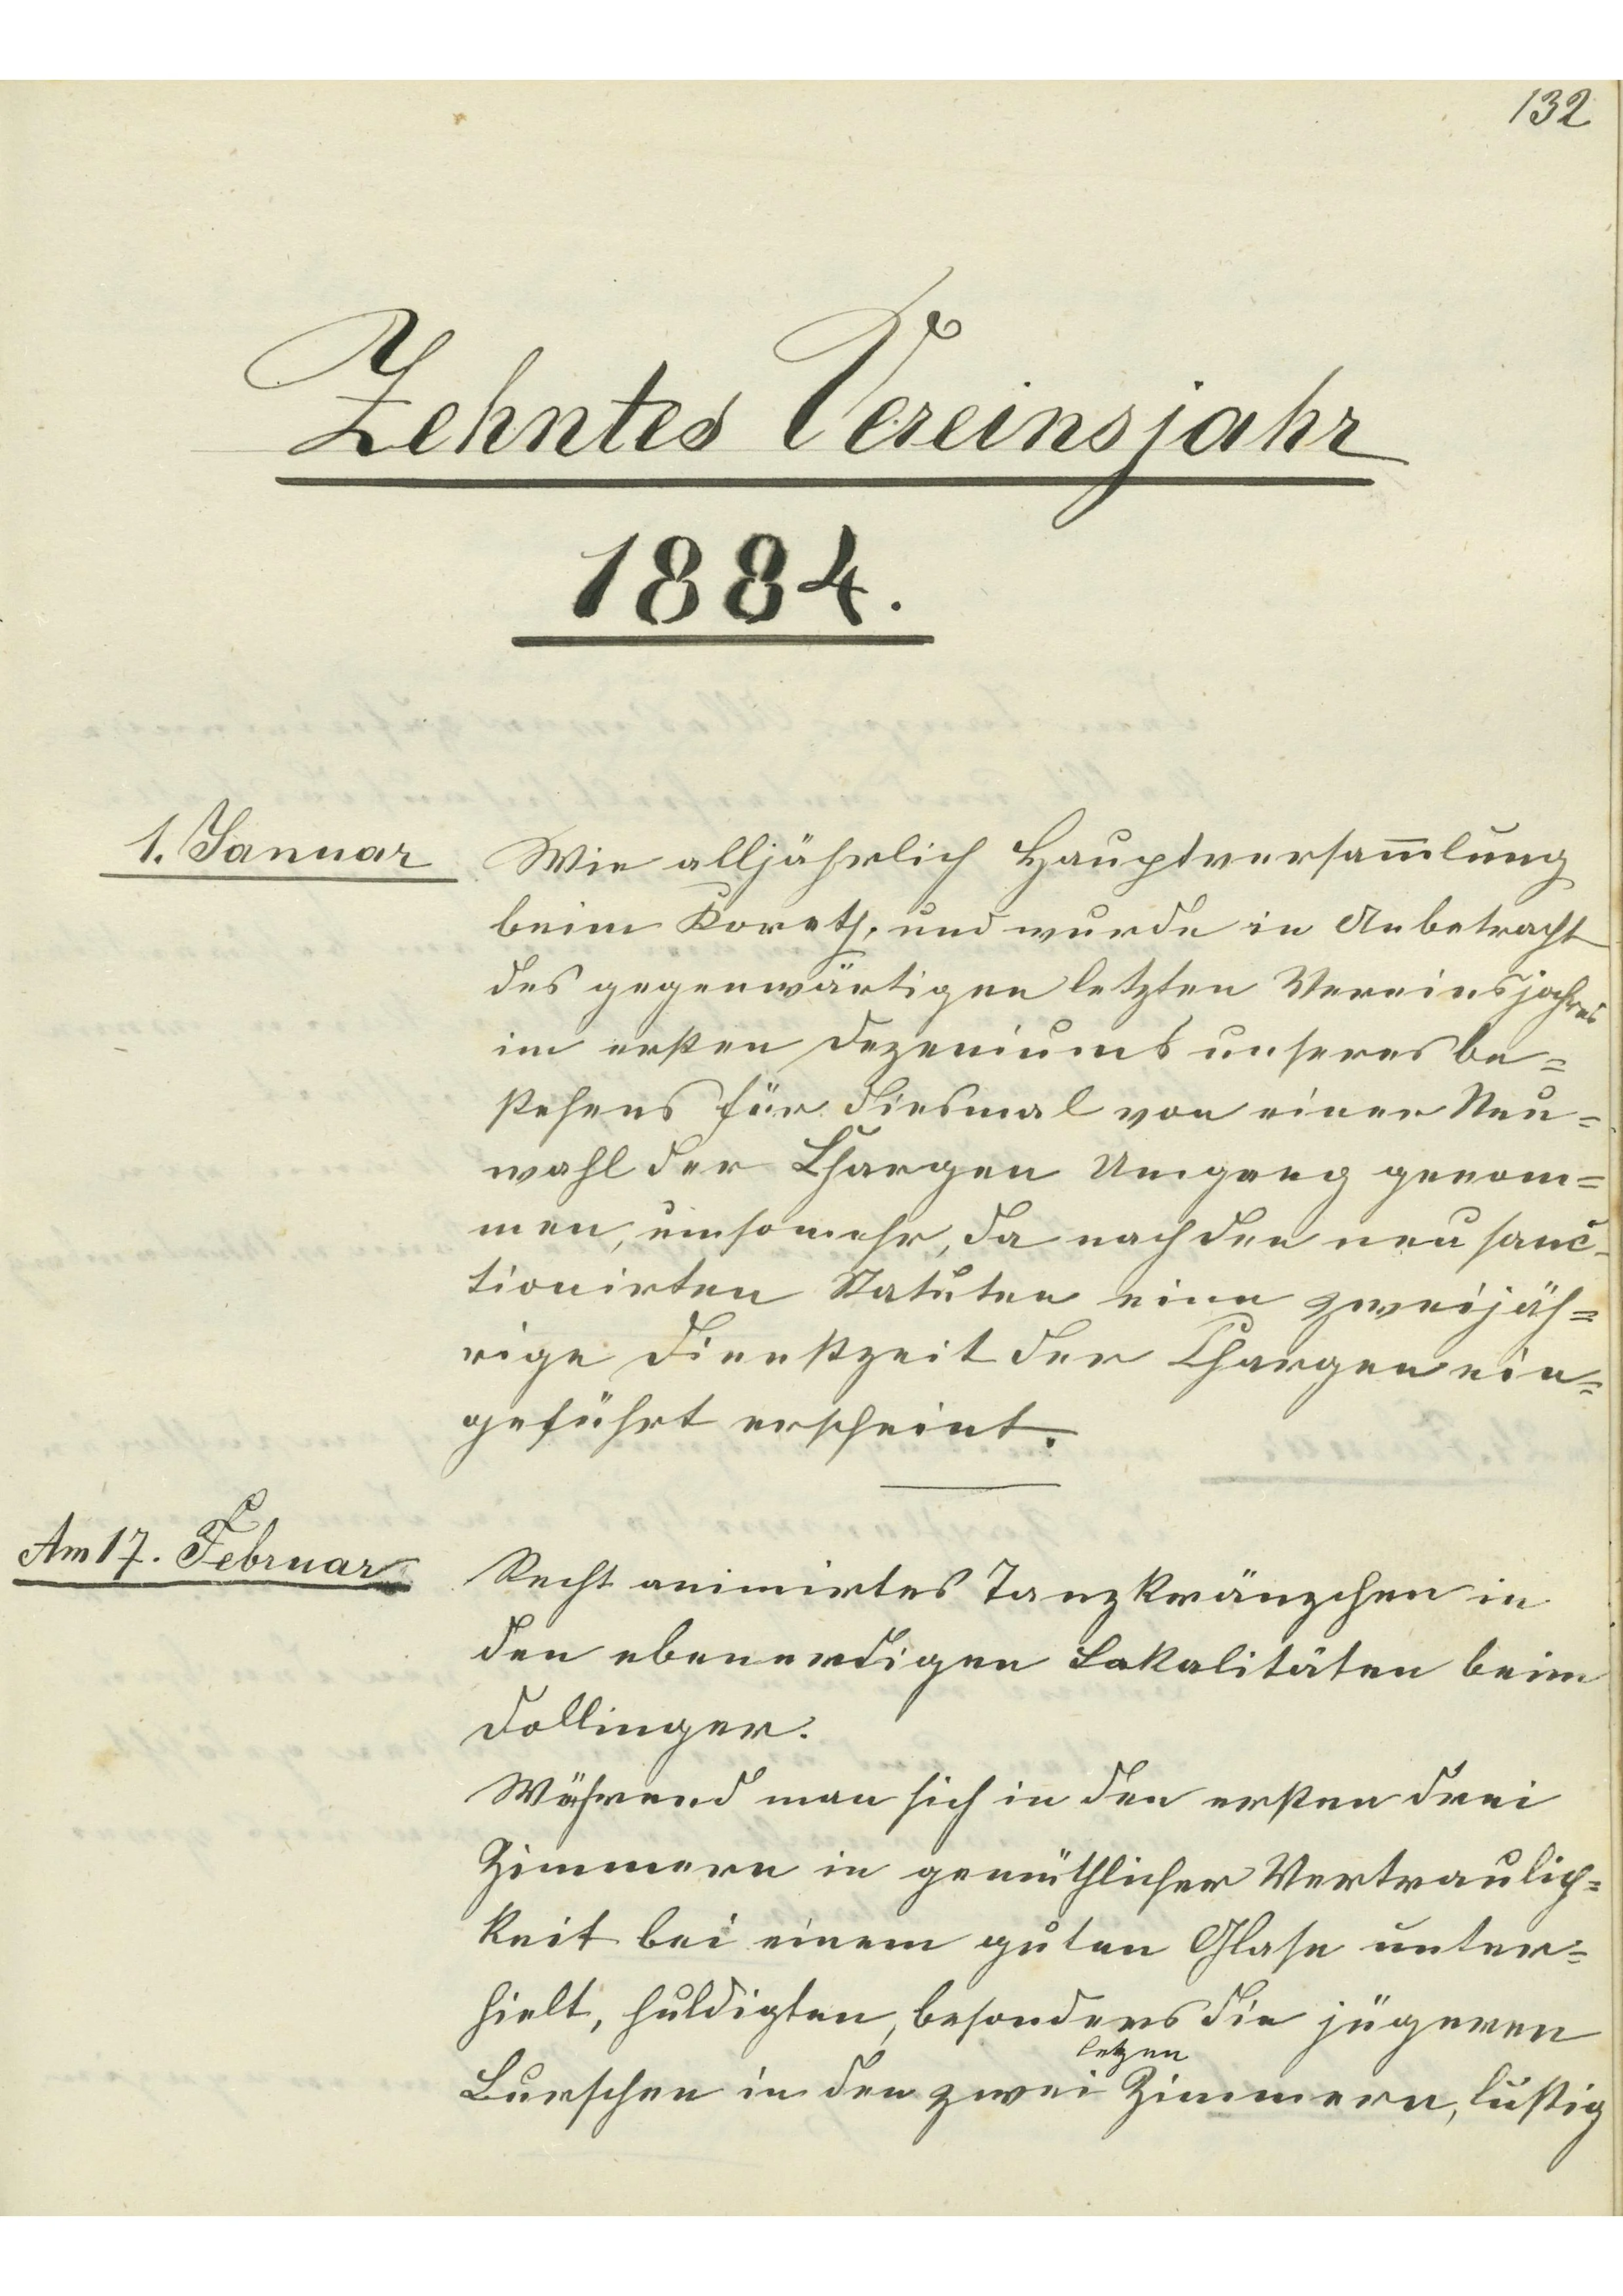 132
Zehntes Vereinsjahr
1884.
1. Januar
Wie alljährlich Hauptversam̅lung
beim Koreth, und wurde in Anbetracht
des gegenwärtigen letzten Vereinsjahres
im ersten Dezeniums unseres Be=
stehens für diesmal von einer Neu=
wahl der Chargen Umgang genom=
men, umsomehr, da nach den neu sanc-
tionirten Statuten eine zweijäh=
rige Dienstzeit der Chargen ein=
geführt erscheint.
Am 17. Februar
Recht animirtes Tanzkränzchen in
den ebenerdigen Lokalitäten beim
Dollinger.
Während man sich in den ersten drei
Zimmern in gemüthlicher Vertraulich=
keit bei einem guten Glase unter=
hielt, huldigten, besonders die jügeren
letzen
Burschen in den zwei Zimmern, lustig